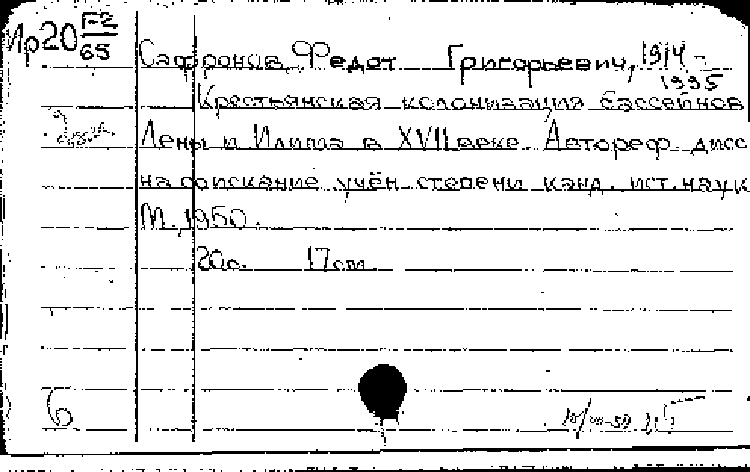 Ир20 Г-2/65
Сафронов, Федот Григорьевич, 1914-
1995
Крестьянская колонизация бассейнов
Лены и Илима в XVII веке. Автореф. дисс
на соискание учён. степени канд. ист. наук
М., 1950.
20с. 17см
6